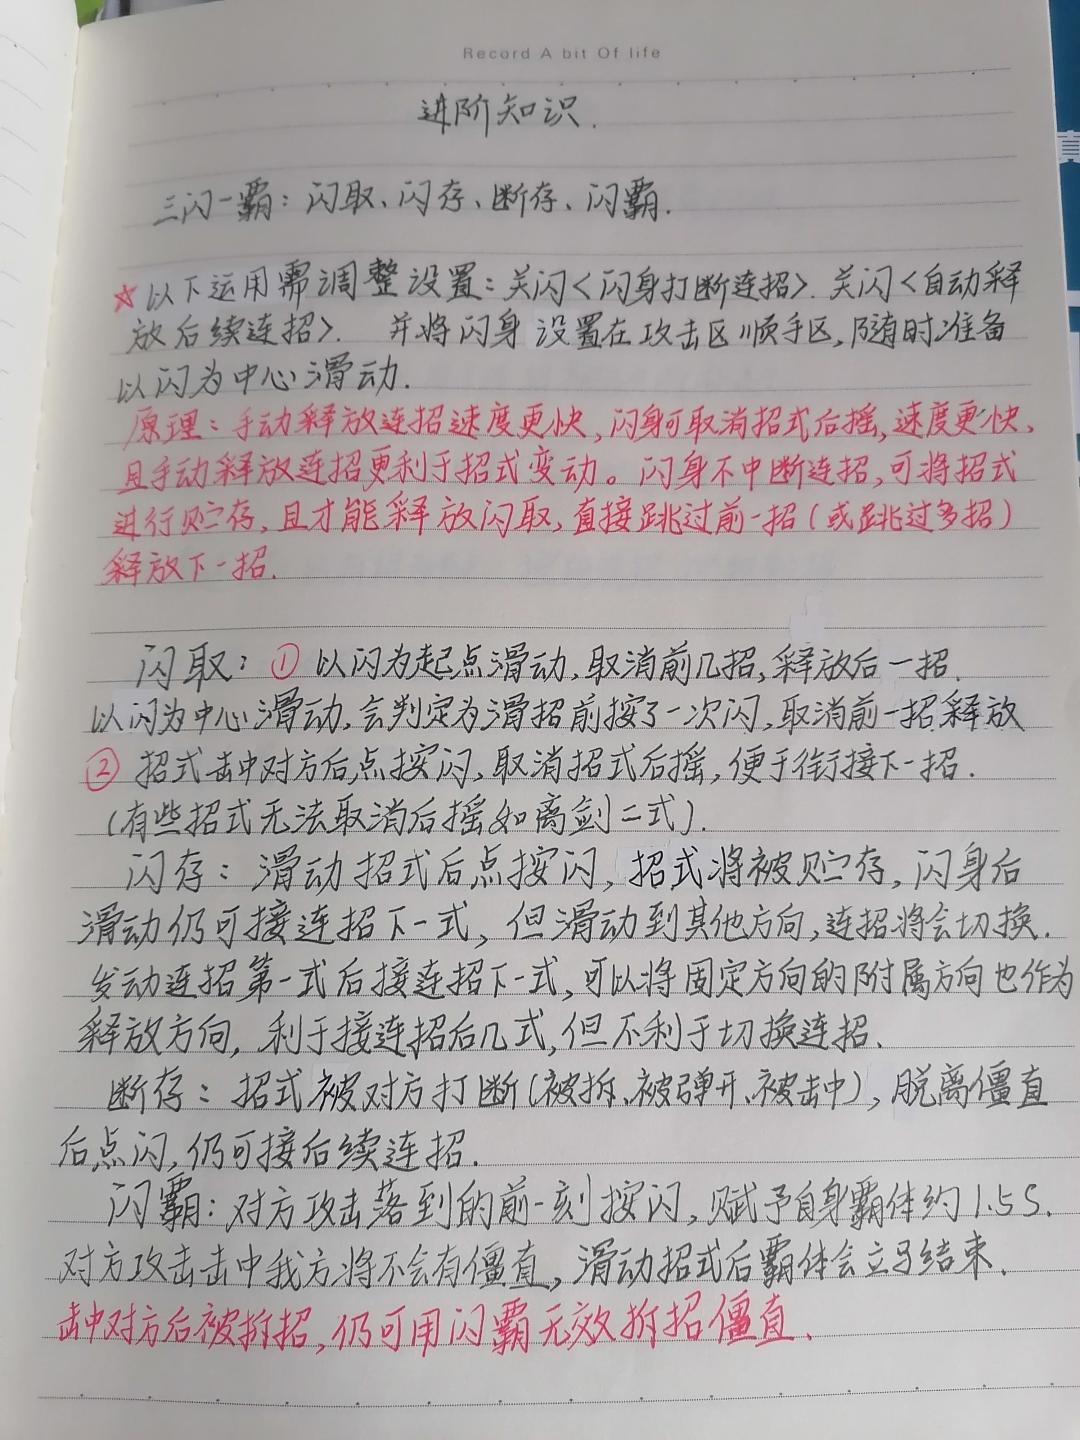 Record A bit Of life
进阶知识.
三闪一霸：闪取、闪存、断存、闪霸.
☆以下运用需调整设置：关闪<闪身打断连招>. 关闪<自动释
放后续连招>. 并将闪身设置在攻击区顺手区，随时准备
以闪为中心滑动.
原理：手动释放连招速度更快，闪身可取消招式后摇，速度更快，
且手动释放连招更利于招式变动。闪身不中断连招，可将招式
进行贮存，且才能释放闪取，直接跳过前一招（或跳过多招）
释放下一招.
闪取：① 以闪为起点滑动，取消前几招，释放后一招.
以闪为中心滑动，会判定为滑招前按了一次闪，取消前一招释放
② 招式击中对方后，点按闪，取消招式后摇，便于衔接下一招.
（有些招式无法取消后摇如离剑二式）.
闪存：滑动招式后点按闪，招式将被贮存，闪身后
滑动仍可接连招下一式，但滑动到其他方向，连招将会切换.
发动连招第一式后接连招下一式，可以将固定方向的附属方向也作为
释放方向，利于接连招后几式，但不利于切换连招.
断存：招式被对方打断（被拆、被弹开、被击中），脱离僵直
后点闪，仍可接后续连招.
闪霸：对方攻击落到的前一刻按闪，赋予自身霸体约1.5S.
对方攻击击中我方将不会有僵直，滑动招式后霸体会立马结束.
击中对方后被拆招，仍可用闪霸无效拆招僵直.
真